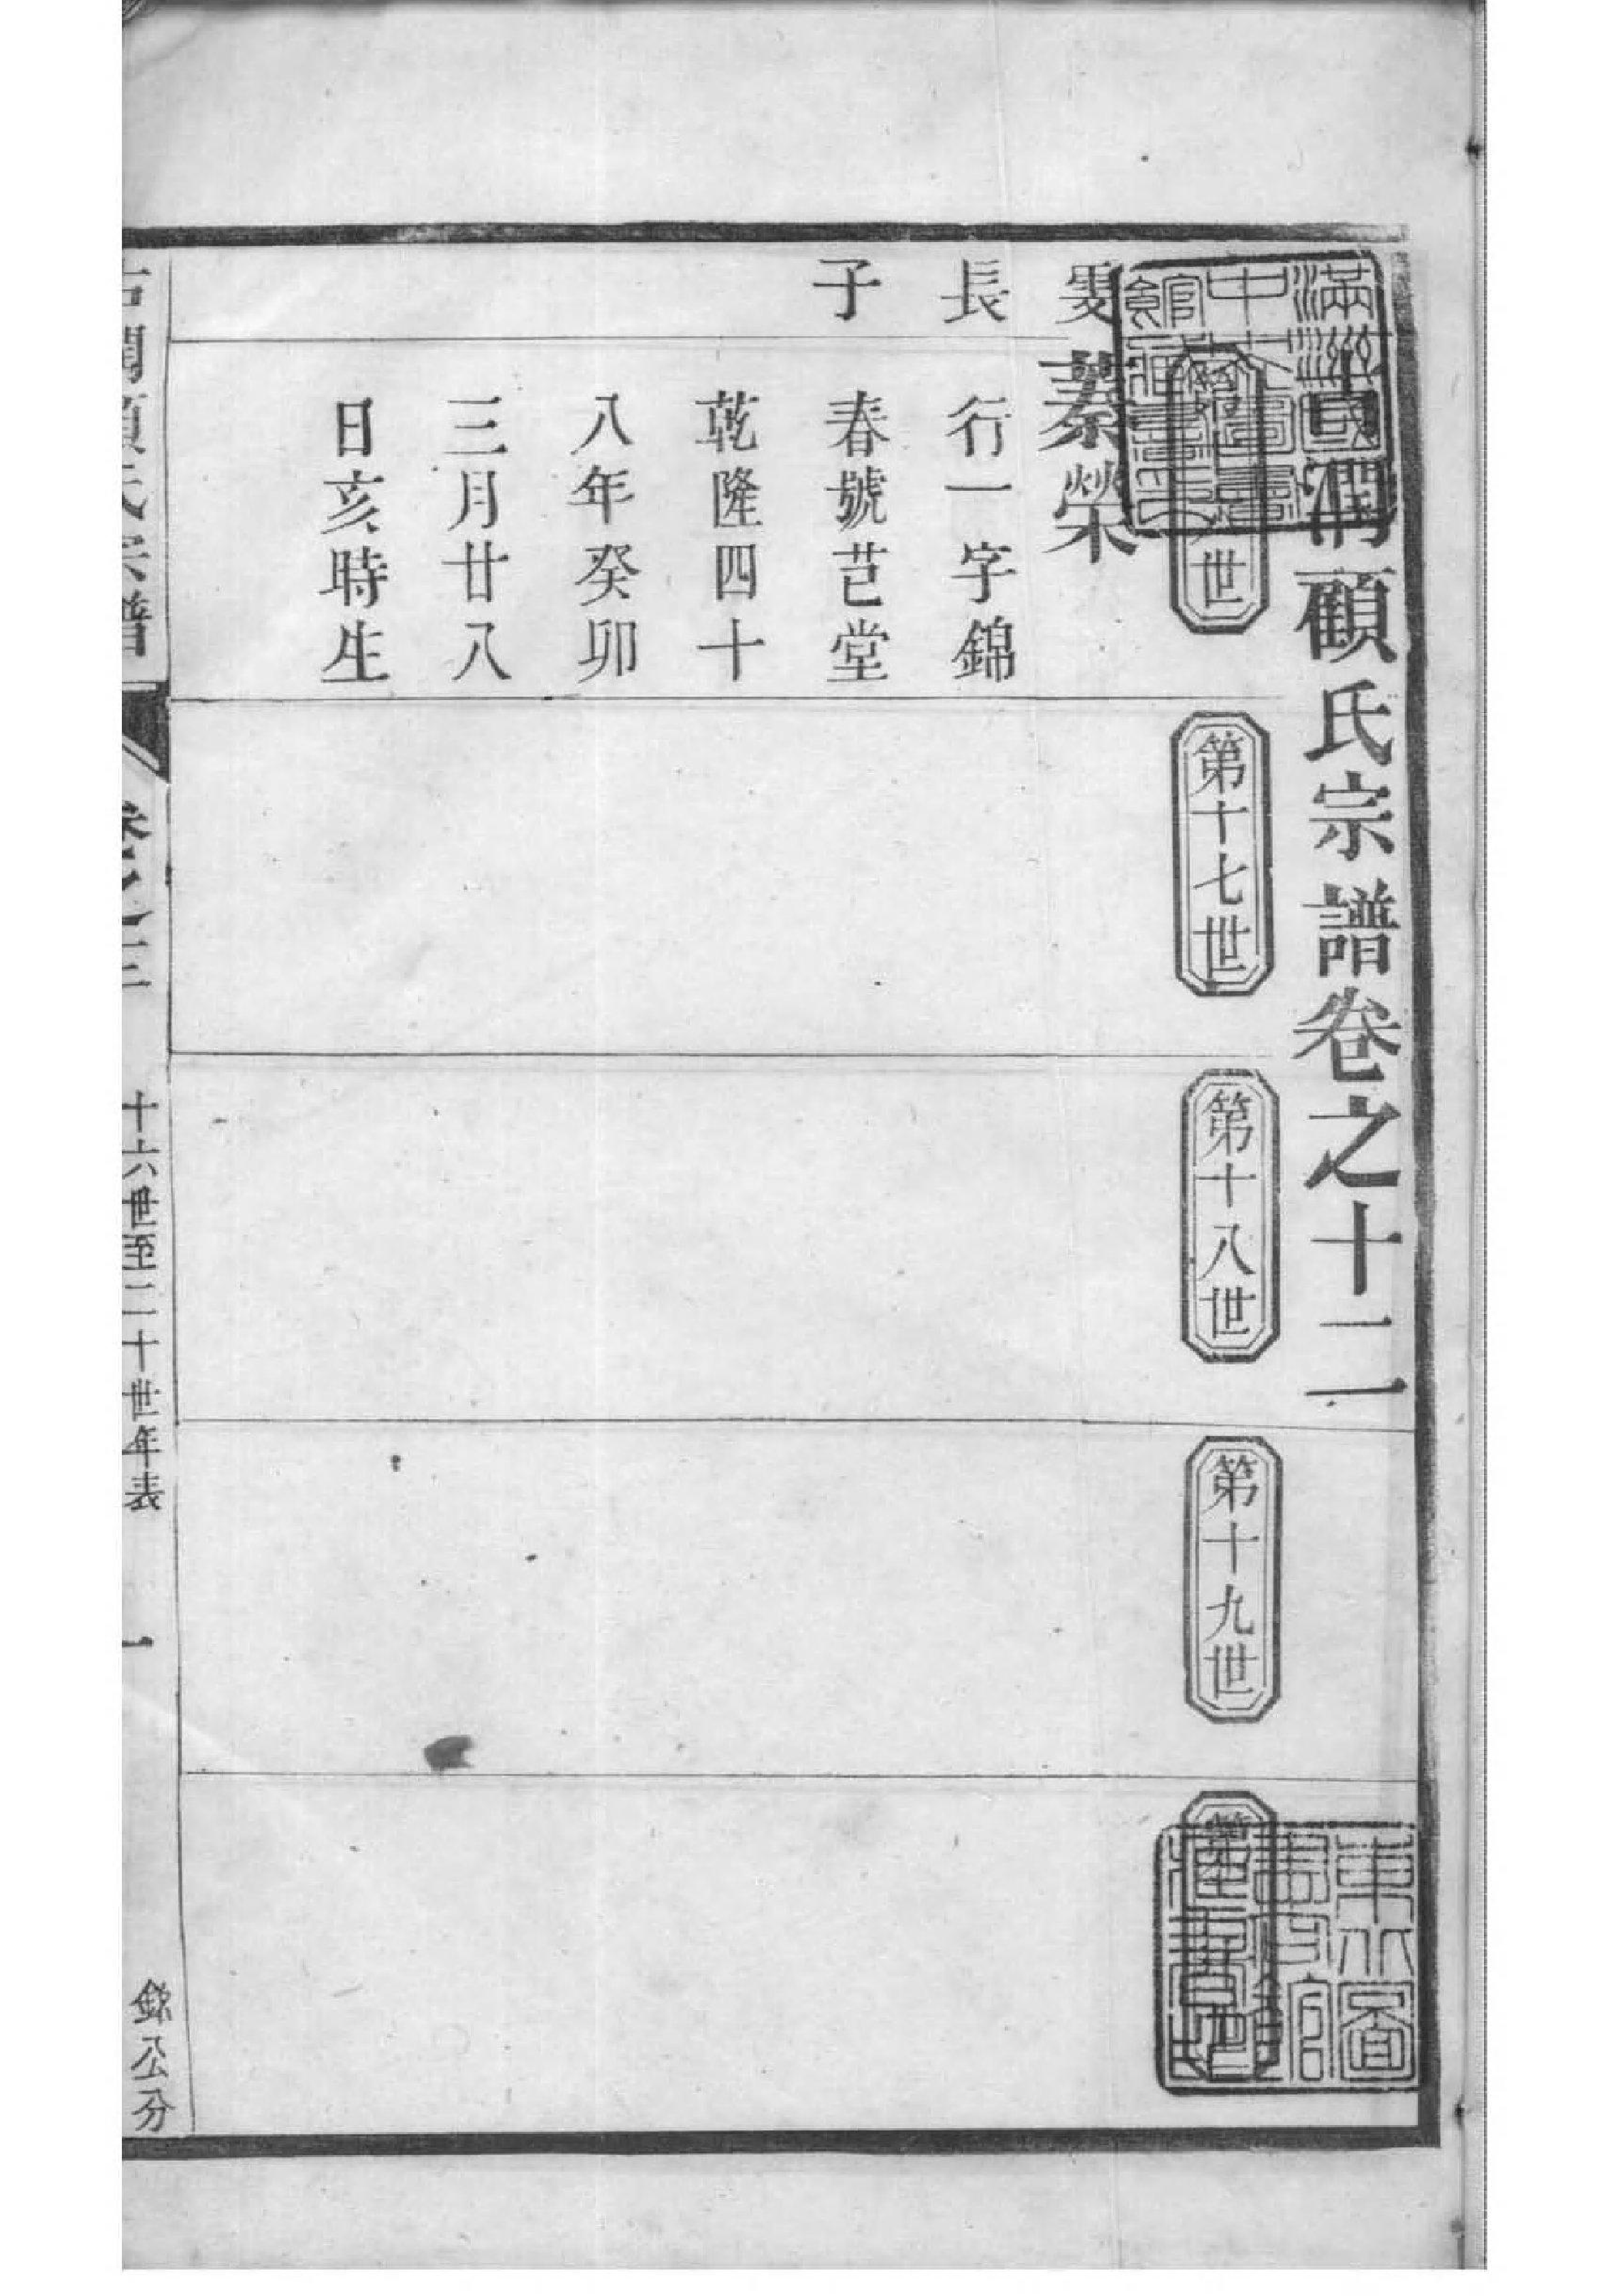 古潤顧氏宗譜卷之十二
世
第十七世
第十八世
第十九世
第
雯
長
子
蓁榮
行一字錦
春號芑堂
乾隆四十
八年癸卯
三月廿八
日亥時生
古潤顧氏宗譜
卷之十二
十六世至二十世年表
一
公分